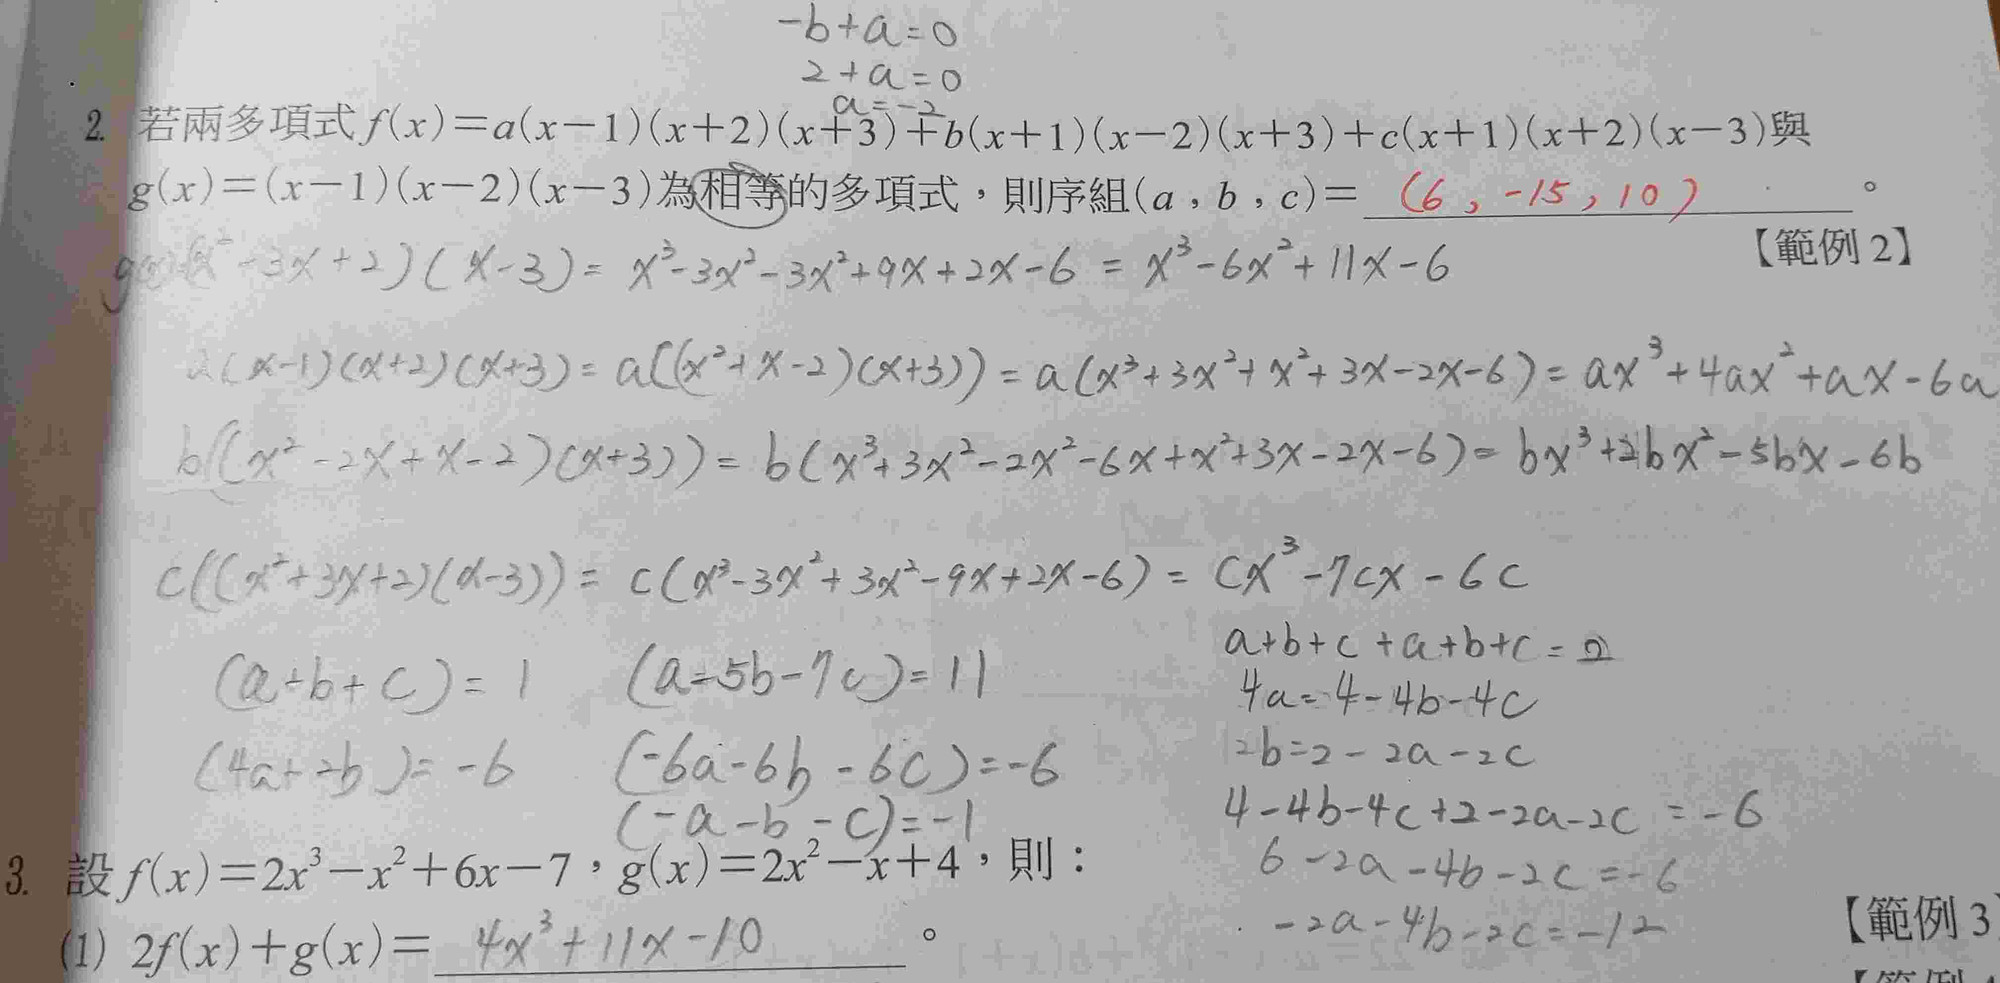 -b+a=0
2+a=0
a=-2
2. 若兩多項式 f(x)=a(x-1)(x+2)(x+3)+b(x+1)(x-2)(x+3)+c(x+1)(x+2)(x-3)與
g(x)=(x-1)(x-2)(x-3)為相等的多項式,則序組(a,b,c)= (6,-15,10) 。
【範例 2】
g(x)=(x²-3x+2)(x-3)= x³-3x²-3x²+9x+2x-6 = x³-6x²+11x-6
a(x-1)(x+2)(x+3)= a((x²+x-2)(x+3))= a(x³+3x²+x²+3x-2x-6)= ax³+4ax²+ax-6a
b((x²-2x+x-2)(x+3))= b(x³+3x²-2x²-6x+x²+3x-2x-6)= bx³+2bx²-5bx-6b
c((x²+3x+2)(x-3))= c(x³-3x²+3x²-9x+2x-6)= cx³-7cx-6c
(a+b+c)=1 (a-5b-7c)=11
a+b+c+a+b+c=2
4a=4-4b-4c
(4a+2b)=-6 (-6a-6b-6c)=-6
2b=2-2a-2c
(-a-b-c)=-1
4-4b-4c+2-2a-2c=-6
3. 設 f(x)=2x³-x²+6x-7,g(x)=2x²-x+4,則:
6-2a-4b-2c=-6
-2a-4b-2c=-12
【範例 3】
(1) 2f(x)+g(x)= 4x³+11x-10 。